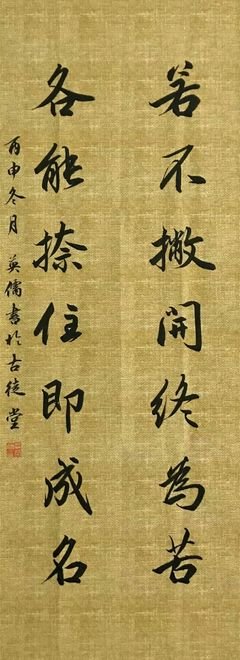 若不撇開終為苦
各能捺住即成名
丙申冬月 英儒書於古徒堂